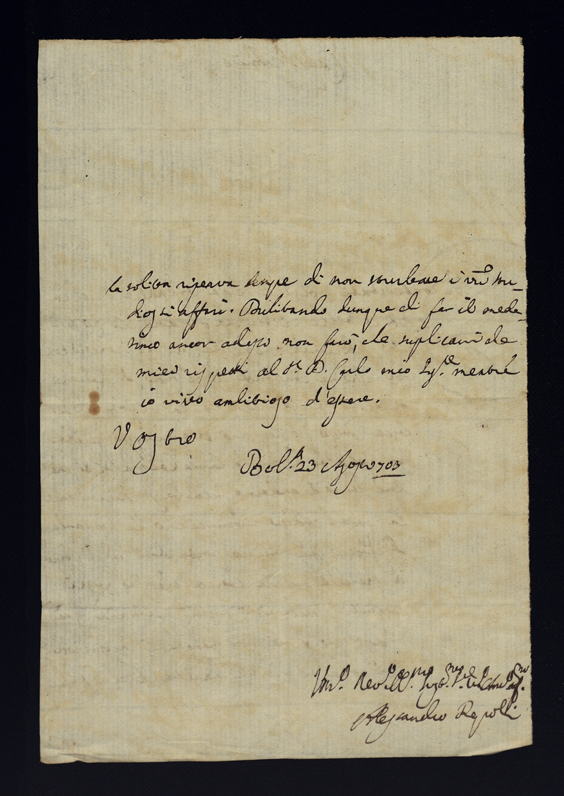 la solita riserva sempre di non sturbare i vri stu-
diosi affari. Bulitando dunque di far il mede-
simo ancor adesso non farò, che suplicarvi de
miei rispetti al Sr. D. Carlo mio Sigre. mentre
io vivo ambitioso d'essere.
Vostro
Bola. 23 Agosto 703
Umo. Devo.
Alessandro